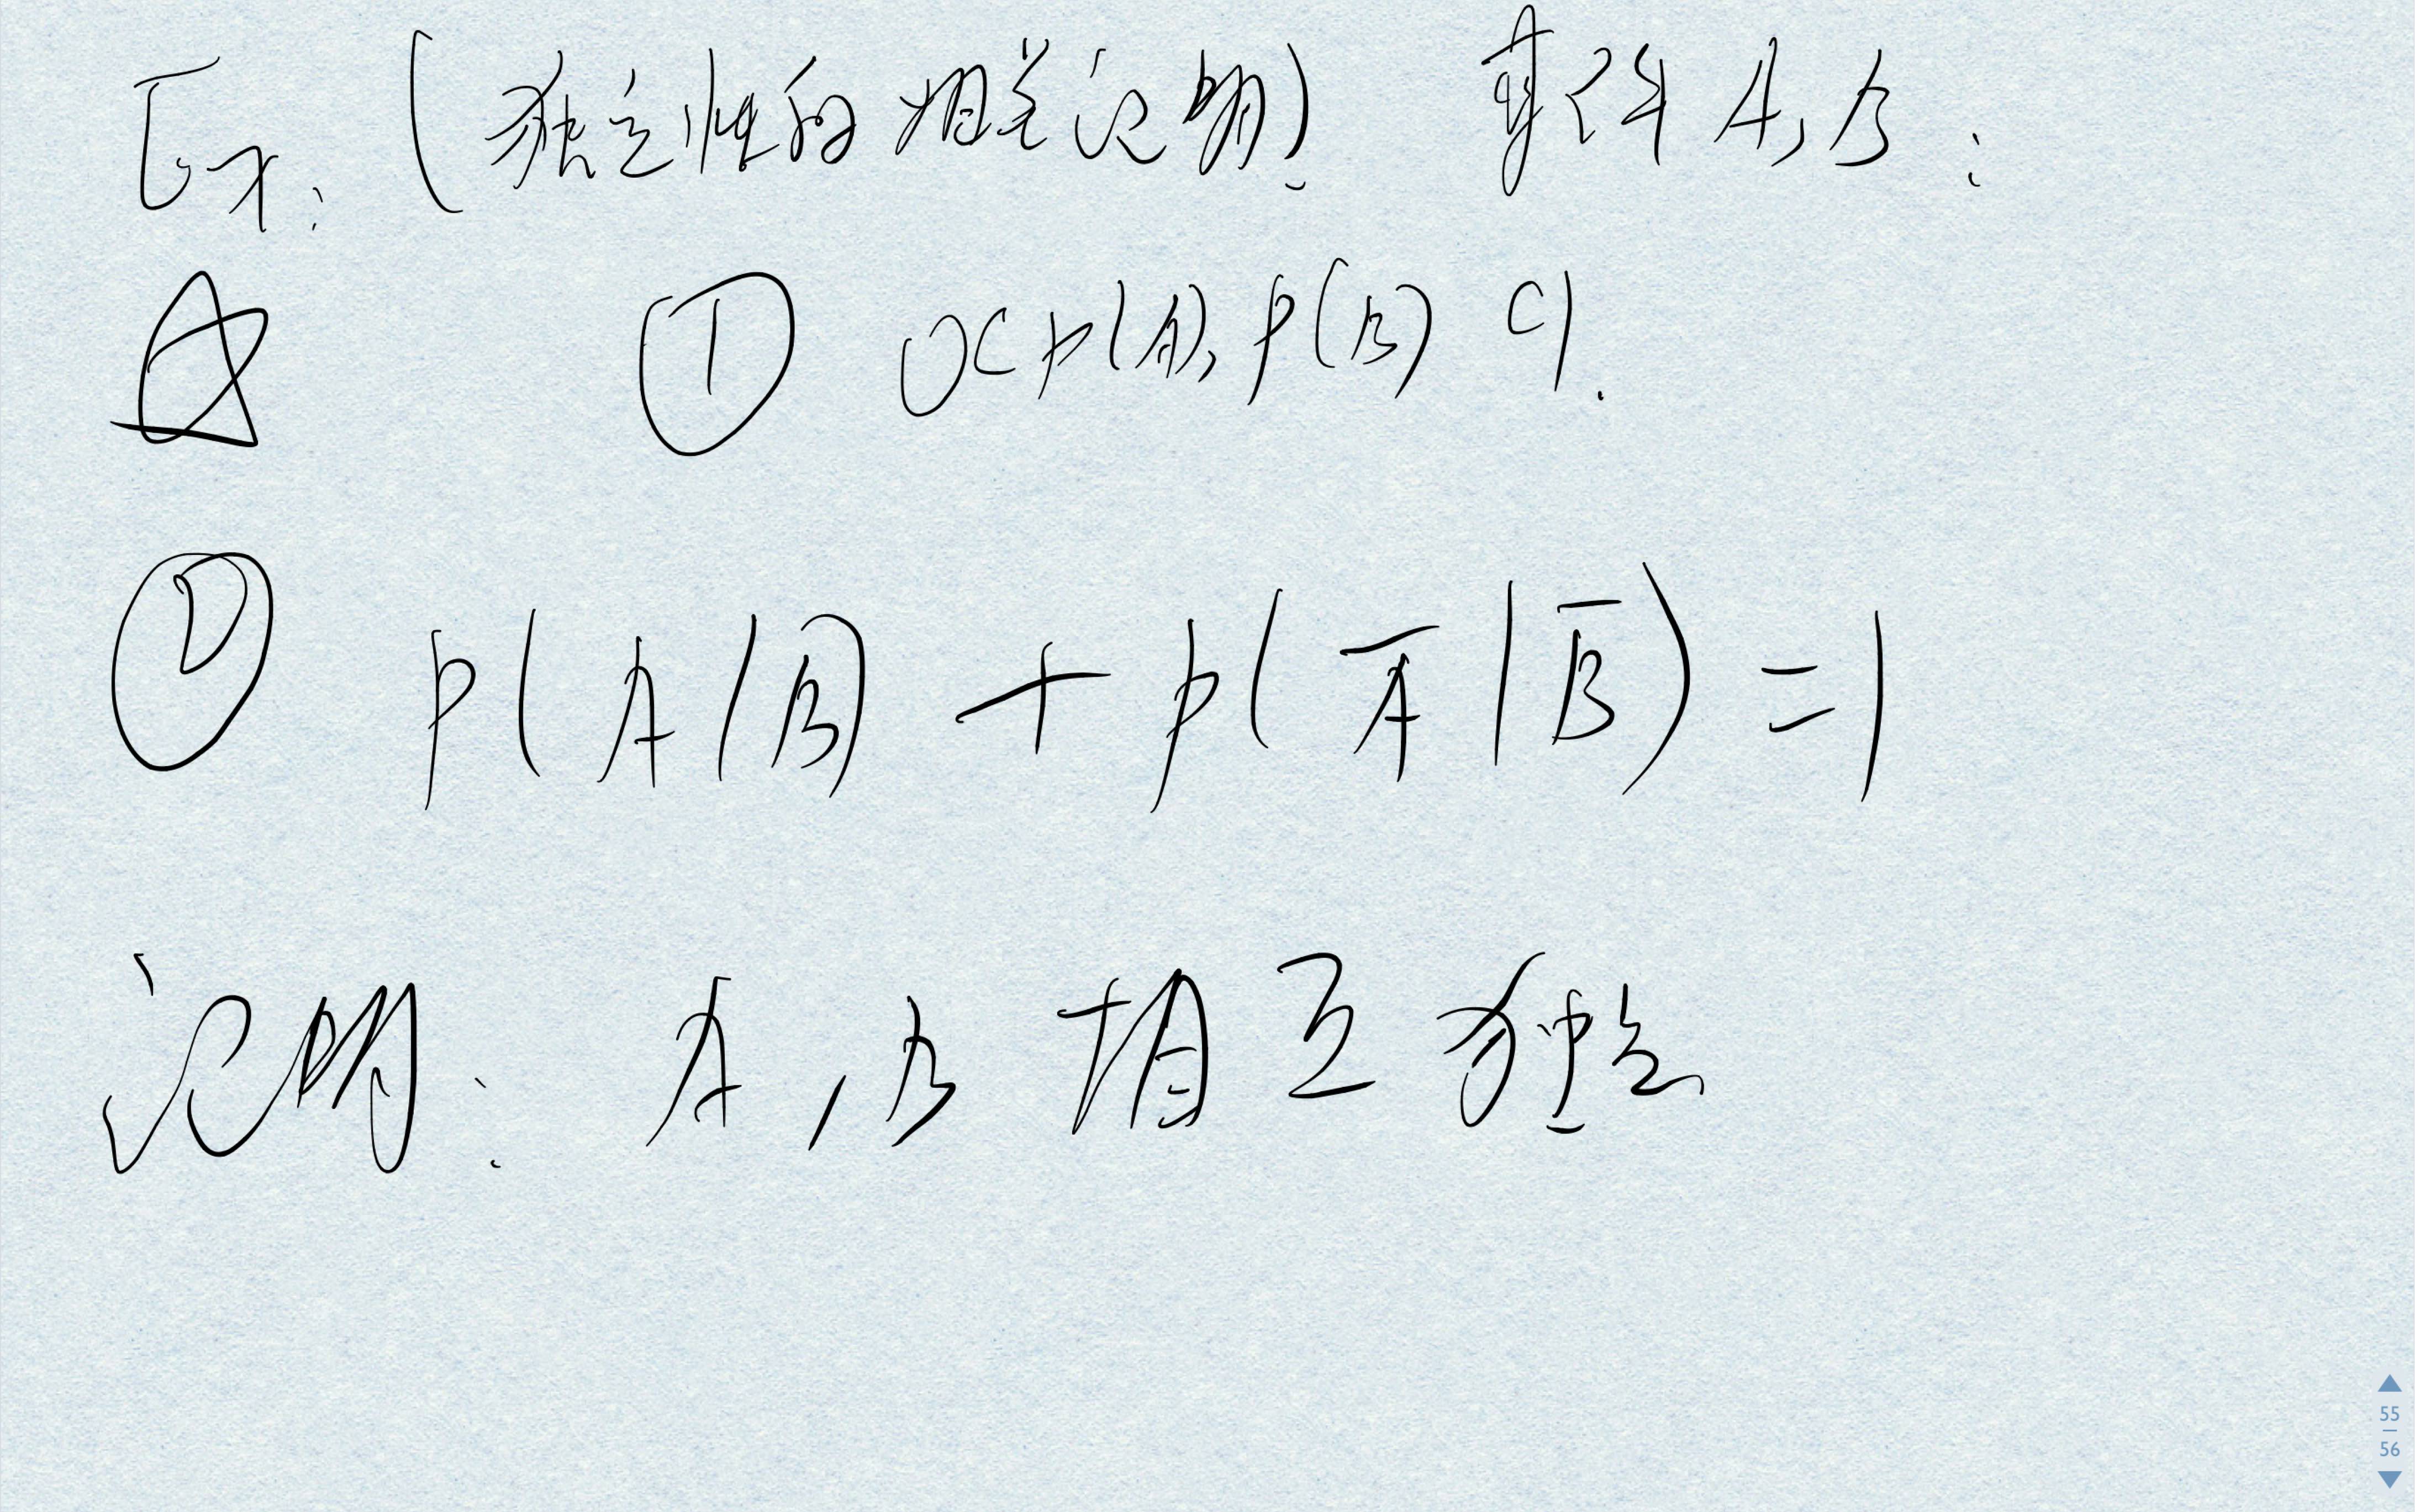 Ex: (独立性的相关证明). 事件 A, B :
① 0<P(A), P(B) <1.
② P(A|B) + P(\overline{A}|\overline{B}) =1
证明: A, B 相互独立
55
56